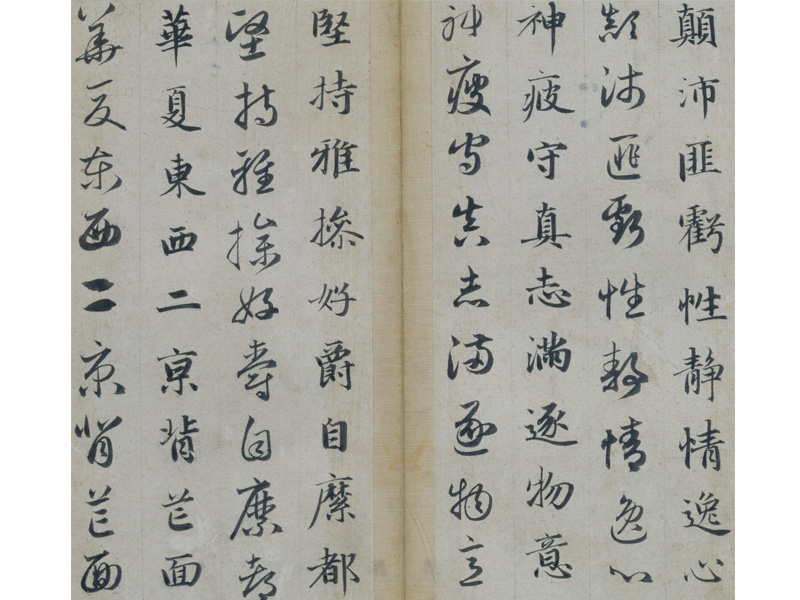 顛沛匪虧性静情逸心
顛沛匪虧性静情逸心
神疲守真志滿逐物意
神疲守真志滿逐物意
堅持雅操好爵自縻都
堅持雅操好爵自縻都
華夏東西二亰背芒面
華夏東西二京背芒面